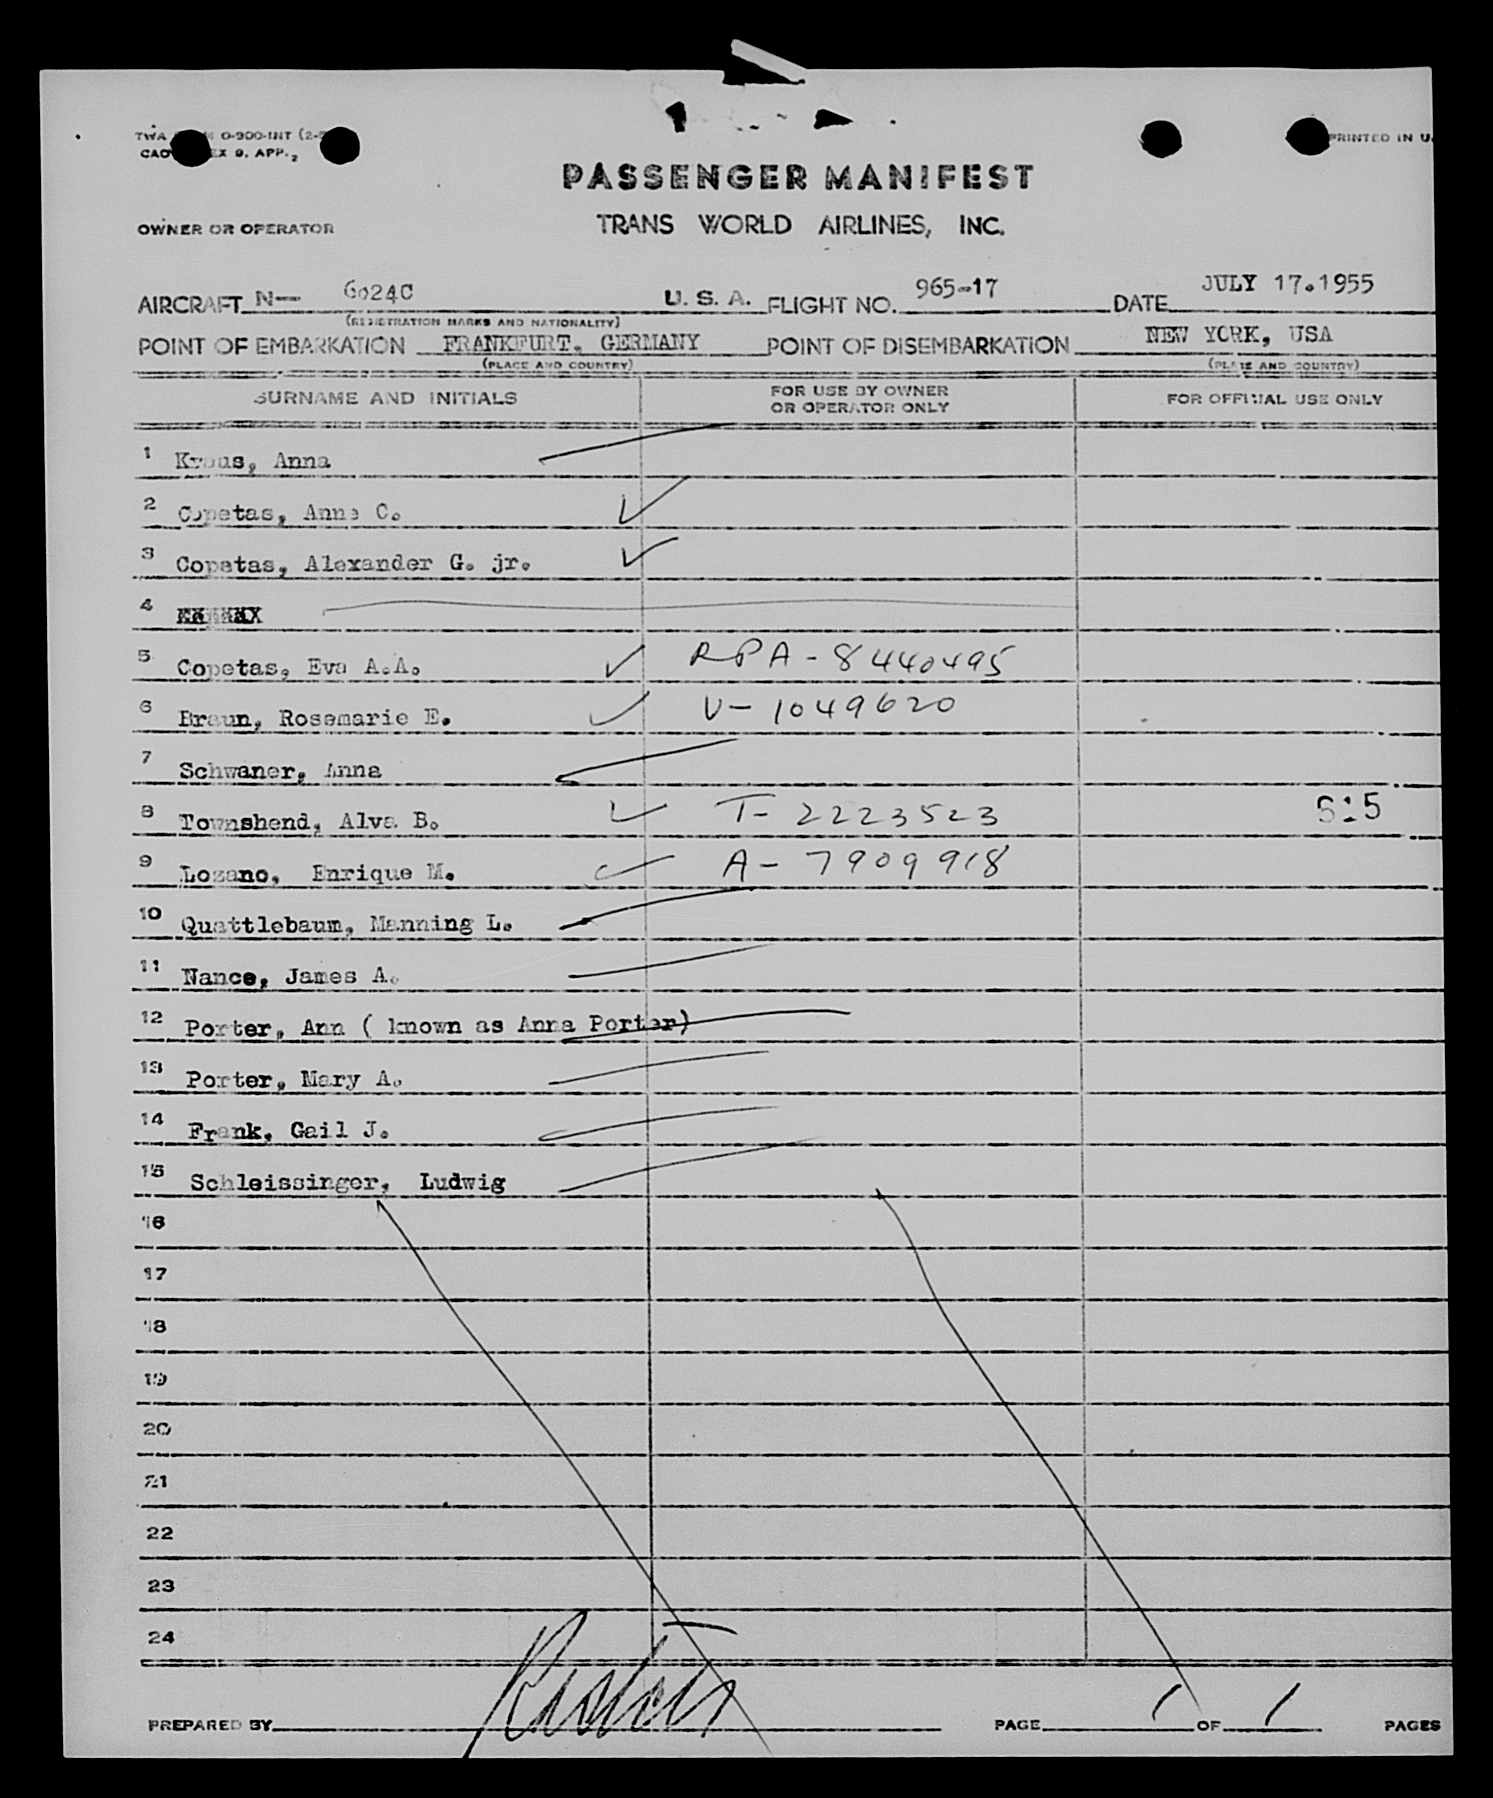 TWA O-900-INT (2-
CAO EX 9. APP. 2
PRINTED IN U.
PASSENGER MANIFEST
OWNER OR OPERATOR
TRANS WORLD AIRLINES, INC.
AIRCRAFT N-- 6024C U. S. A. FLIGHT NO. 965-17 DATE JULY 17.1955
(REGISTRATION MARKS AND NATIONALITY)
POINT OF EMBARKATION FRANKFURT, GERMANY POINT OF DISEMBARKATION NEW YORK, USA
(PLACE AND COUNTRY) (PLACE AND COUNTRY)
SURNAME AND INITIALS FOR USE BY OWNER OR OPERATOR ONLY FOR OFFICIAL USE ONLY
1 Kraus, Anna
2 Copetas, Anna C.
3 Copetas, Alexander G. jr.
4
5 Copetas, Eva A.A. RPA-8440495
6 Braun, Rosemarie E. V-1049620
7 Schwaner, Anna
8 Townshend, Alva B. T-2223523 615
9 Lozano, Enrique M. A-7909918
10 Quattlebaum, Manning L.
11 Nance, James A.
12 Porter, Ann ( known as Anna Porter)
13 Porter, Mary A.
14 Frank, Gail J.
15 Schleissinger, Ludwig
16
17
18
19
20
21
22
23
24
PREPARED BY PAGE 1 OF 1 PAGES